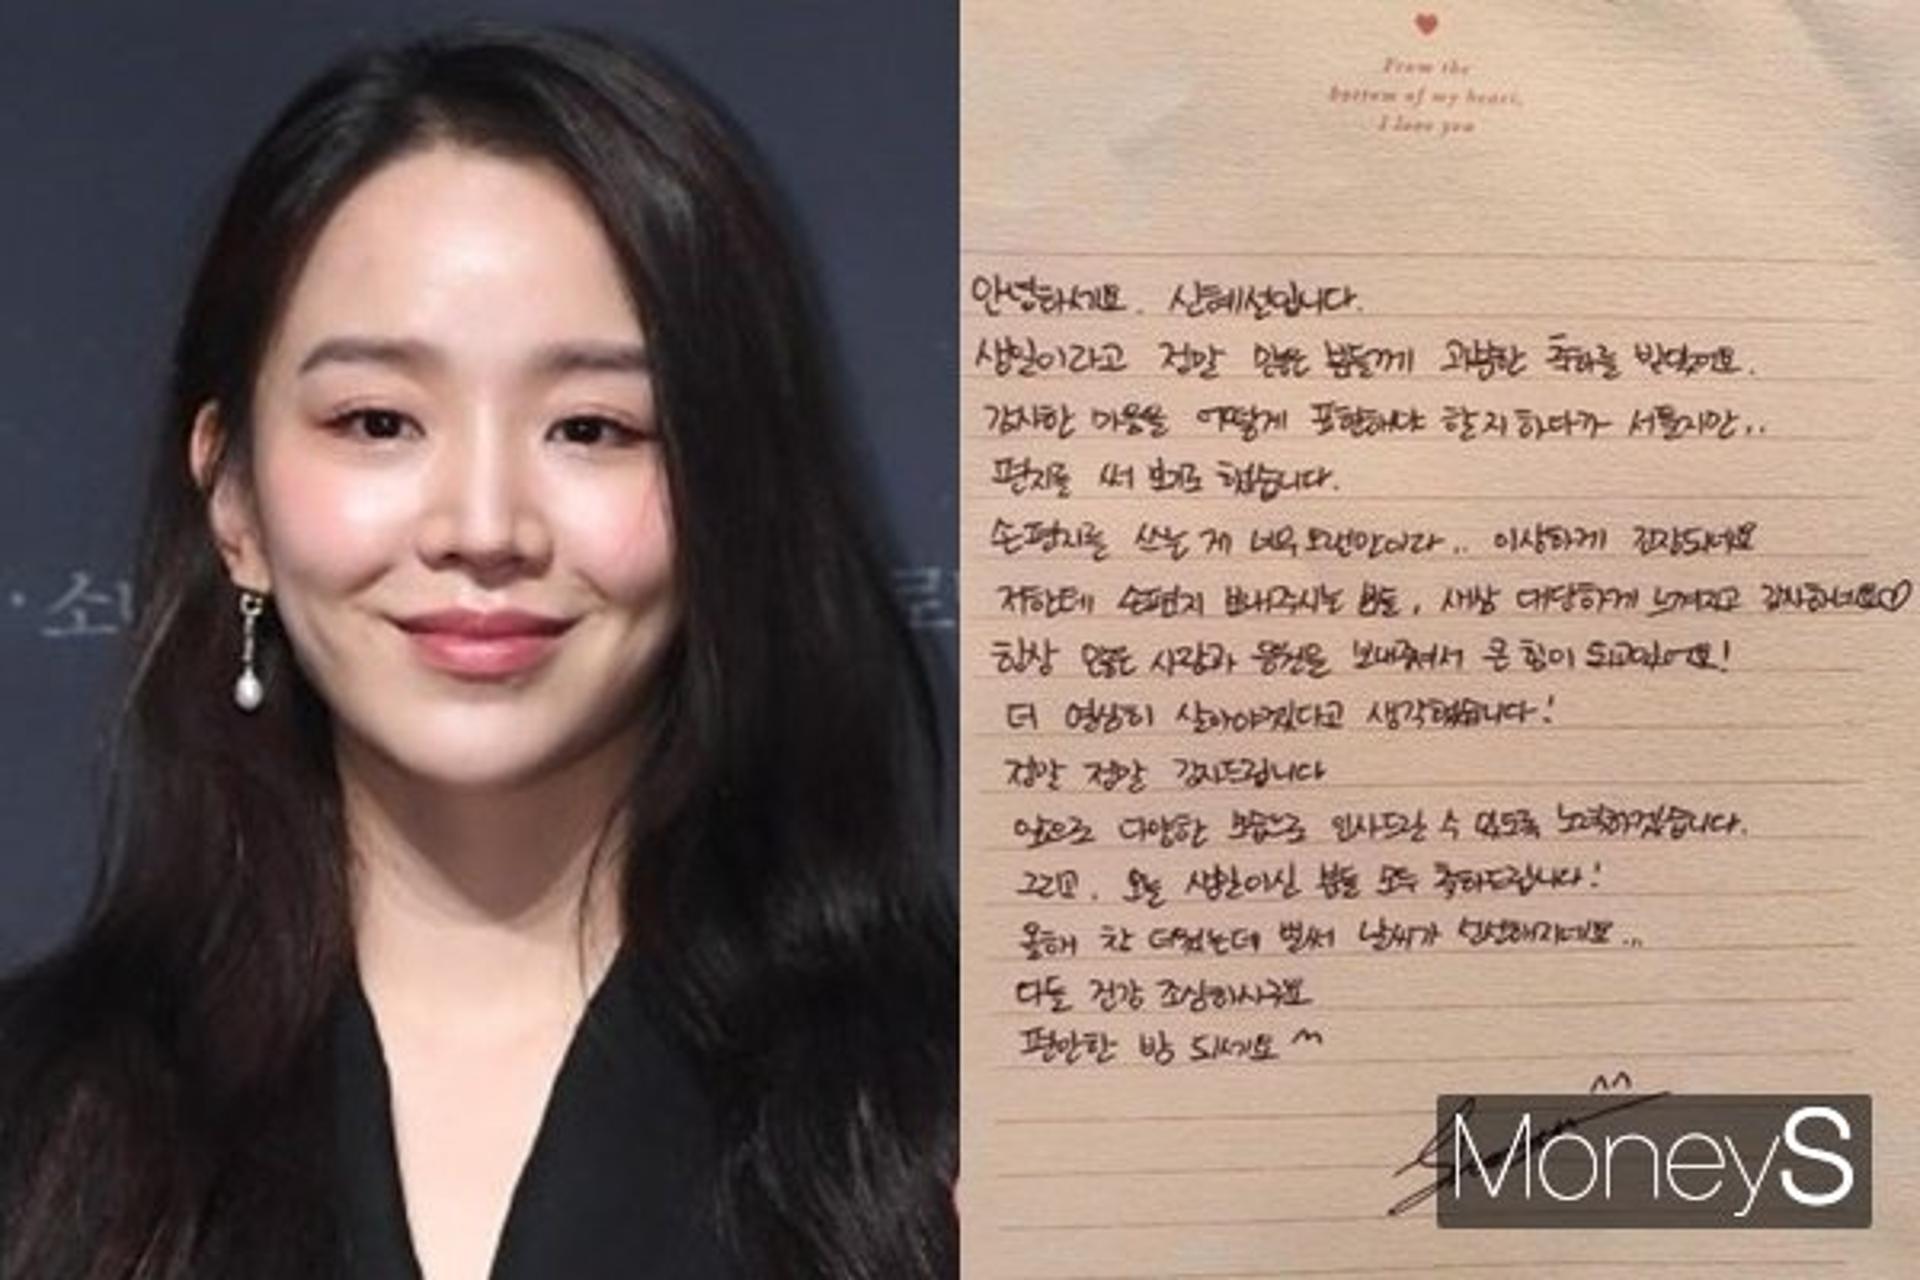 · 쇠
로
From the
bottom of my heart,
I love you
안녕하세요. 신혜선입니다.
생일이라고 정말 많은 분들께 과분한 축하를 받았어요.
감사한 마음을 어떻게 표현해야 할지 하다가 서툴지만..
편지를 써 보기로 했습니다.
손편지를 쓰는 게 너무 오랜만이라.. 이상하게 긴장되네요
저한테 손편지 보내주시는 분들, 새삼 대단하게 느껴지고 감사하네요♡
항상 많은 사랑과 응원을 보내주셔서 큰 힘이 되고있어요!
더 열심히 살아야겠다고 생각했습니다!
정말 정말 감사드립니다
앞으로 다양한 모습으로 인사드릴 수 있도록 노력하겠습니다.
그리고. 오늘 생일이신 분들 모두 축하드립니다!
올해 참 더웠는데 벌써 날씨가 선선해지네요...
다들 건강 조심하시구요
편안한 밤 되세요 ^^
^^
MoneyS